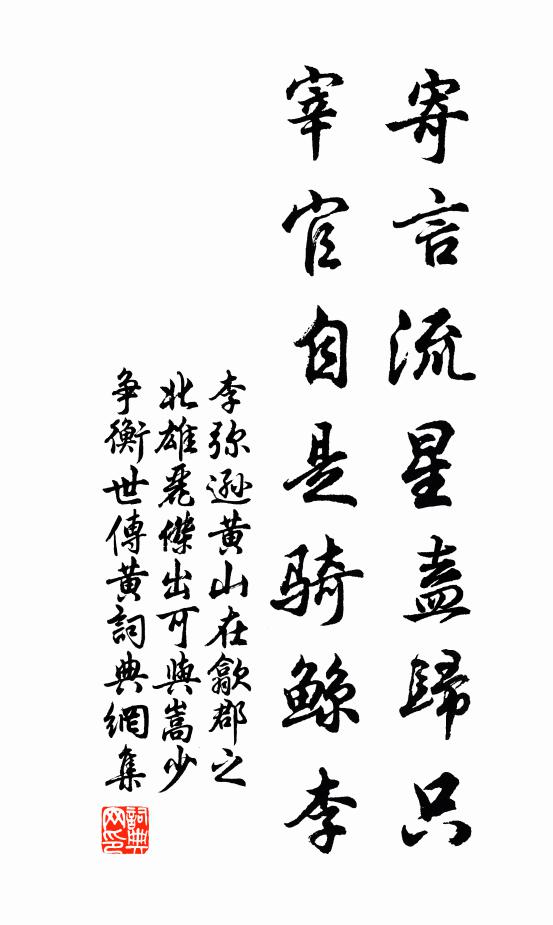 寄言流星盍歸只
宰官自是騎鯨李
李弥遜黄山在歙郡之
北雄麗傑出可與嵩少
争衡世傳黄詞典網集
詞典网印